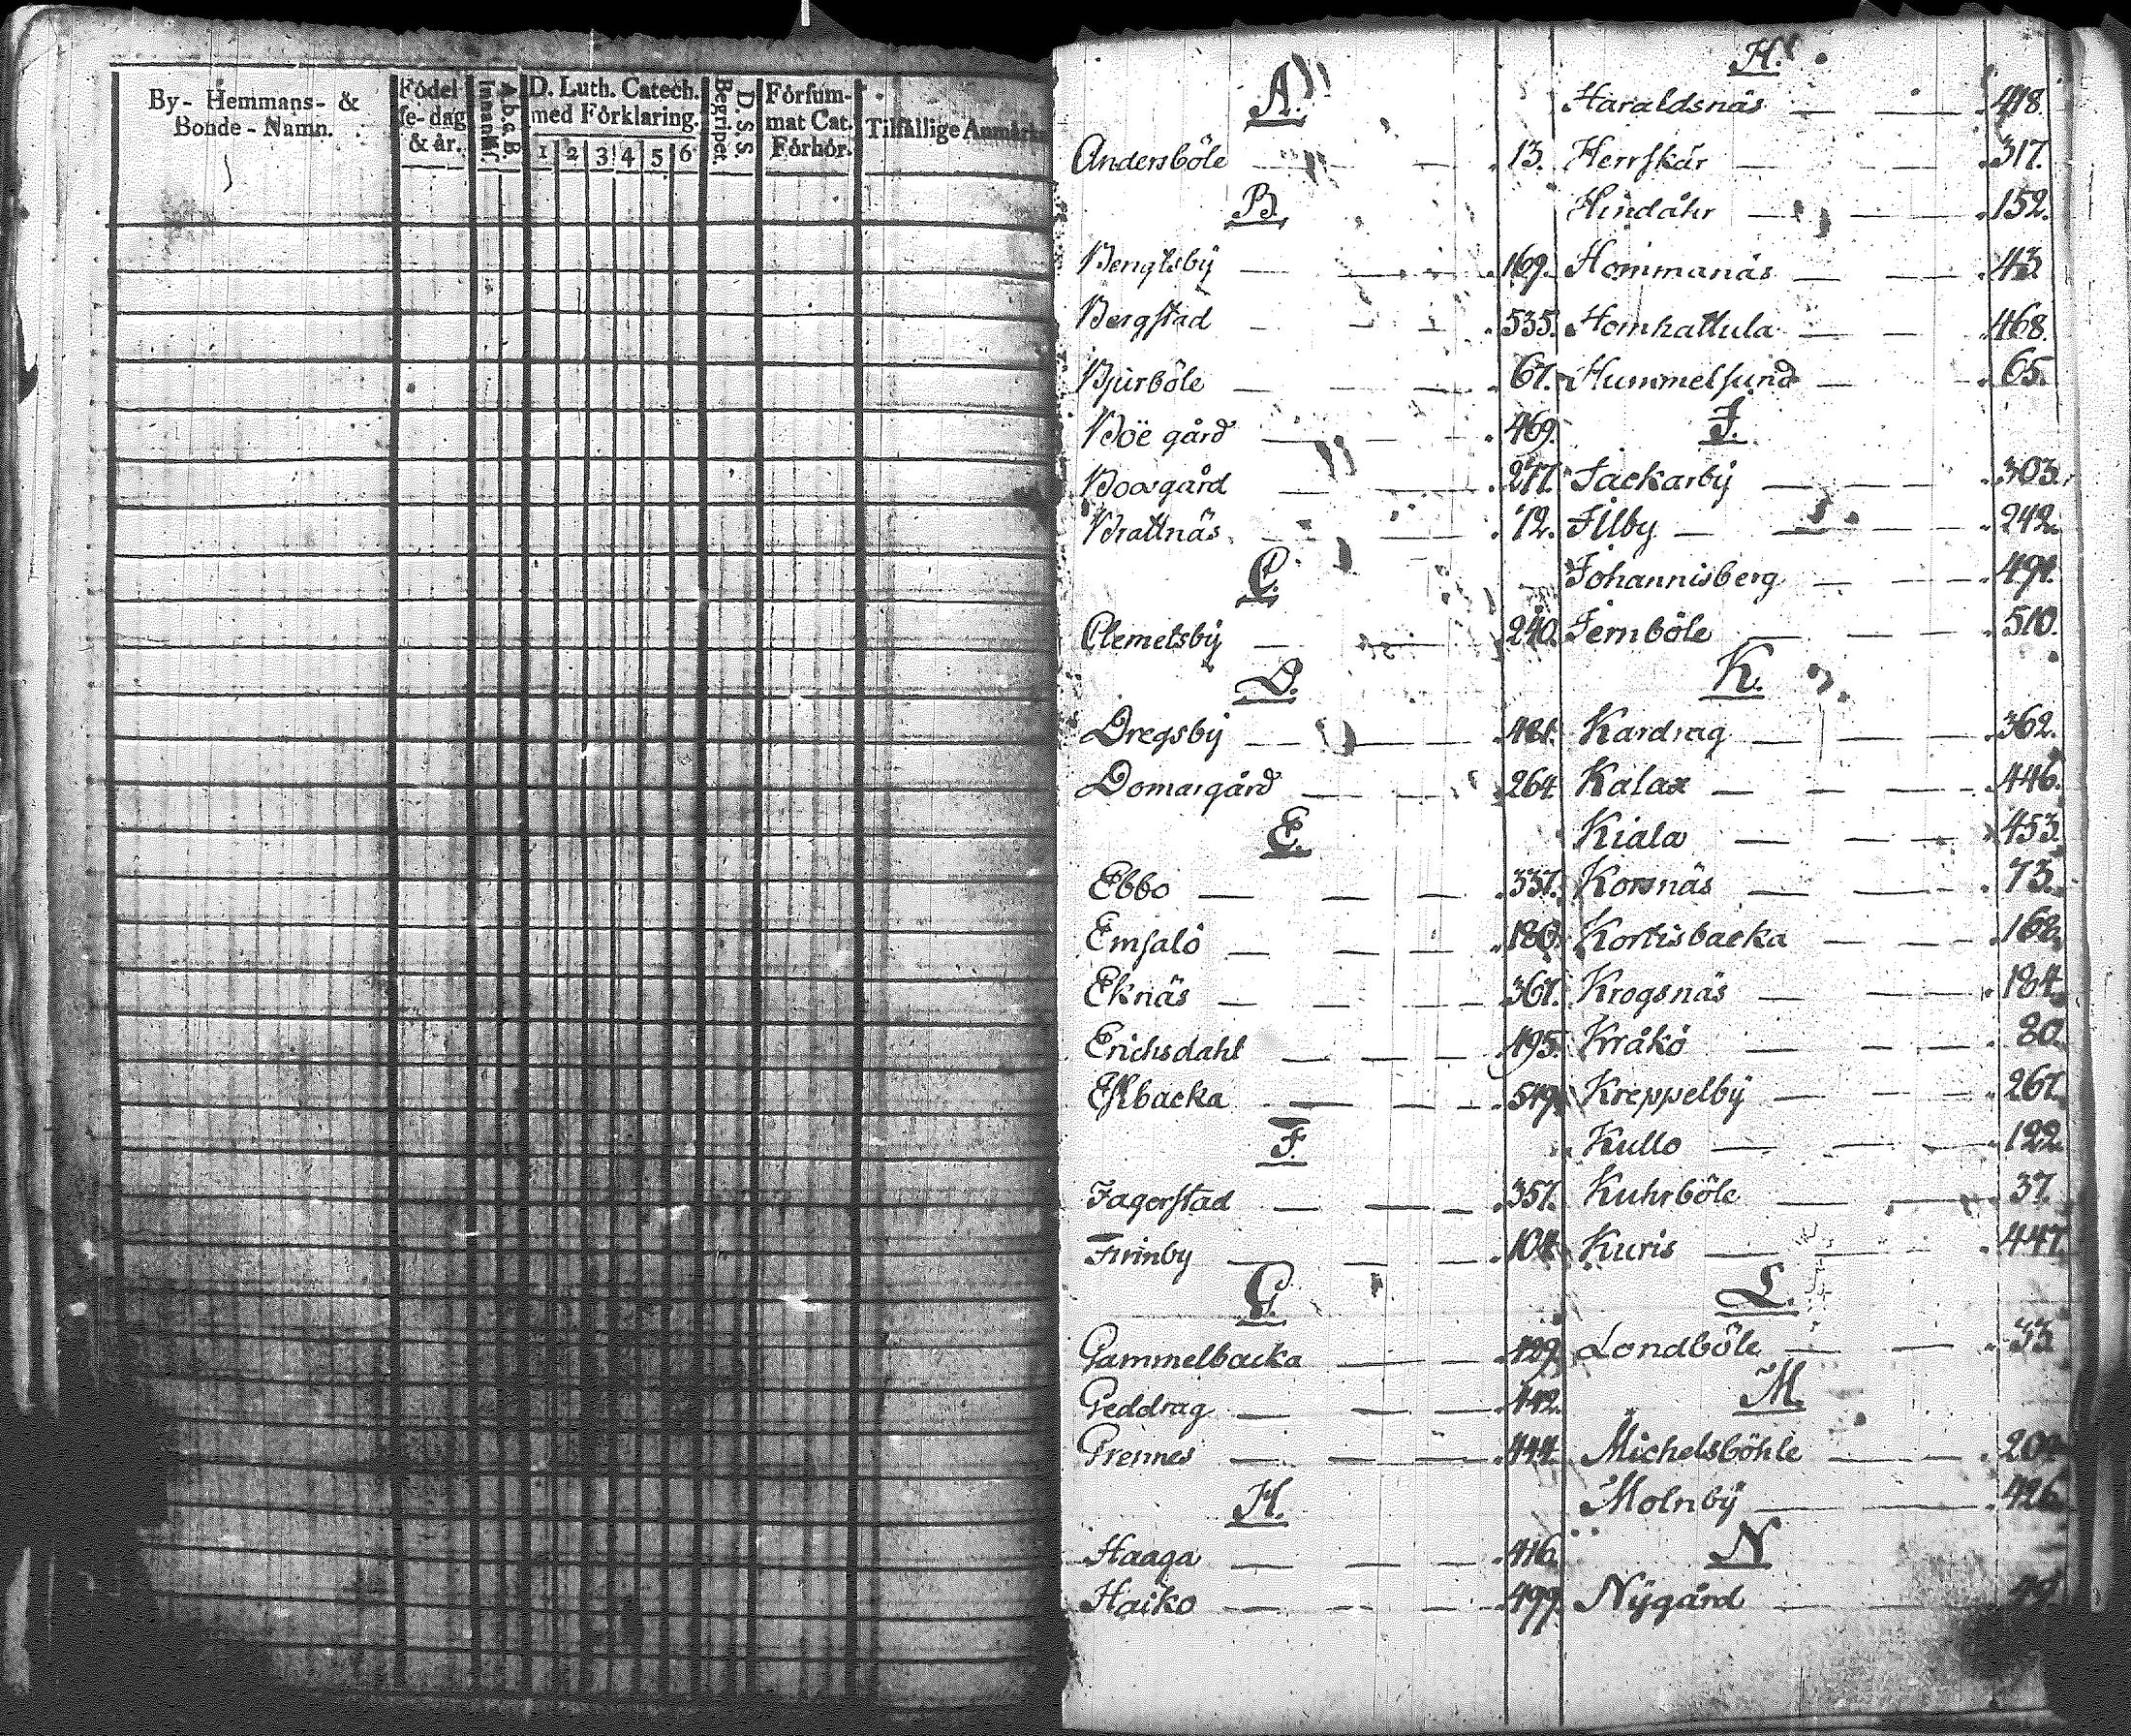 By- Hemmans- &
Bonde-Namn.
Födel-
se-dag
& år.
A.b.c.B.
Innantil.
D. Luth. Catech.
med Förklaring.
1 2 3 4 5 6
D. S. S.
Begripet.
Försum-
mat Cat.
Förhör.
Tilfällige Anmärk
A.
Andersböle 13.
B.
Bengtsby 169.
Bergstad 535.
Bjurböle 67.
Böe gård 469.
Boxgård 277.
Brattnäs 12.
C.
Clemetsby 240.
D.
Dregsby 481.
Domargård 264
E.
Ebbo 337.
Emsalö 180.
Eknäs 367.
Erichsdahl 195.
Eskbacka 549.
F.
Fagerstad 357.
Finnby 104.
G.
Gammelbacka 129.
Geddrag 442.
Grennes 444.
H.
Haaga 416.
Haiko 499.
H.
Haraldsnäs 418.
Herrskär 317.
Hindåhr 152.
Hommanäs 43.
Homhattula 468.
Hummelsund 65.
J.
Jackarby 303.
Illby 242.
Johannisberg 491.
Jernböle 510.
K.
Kardrag 362.
Kalax 446.
Kiala 453.
Korsnäs 73.
Kortisbacka 168.
Krogsnäs 184.
Kråkö 80.
Kreppelby 267.
Kullo 122.
Kuhrböle 37.
Kuris 447.
L.
Londböle 33.
M.
Michelsböhle
Molnby 426.
N
Nygård